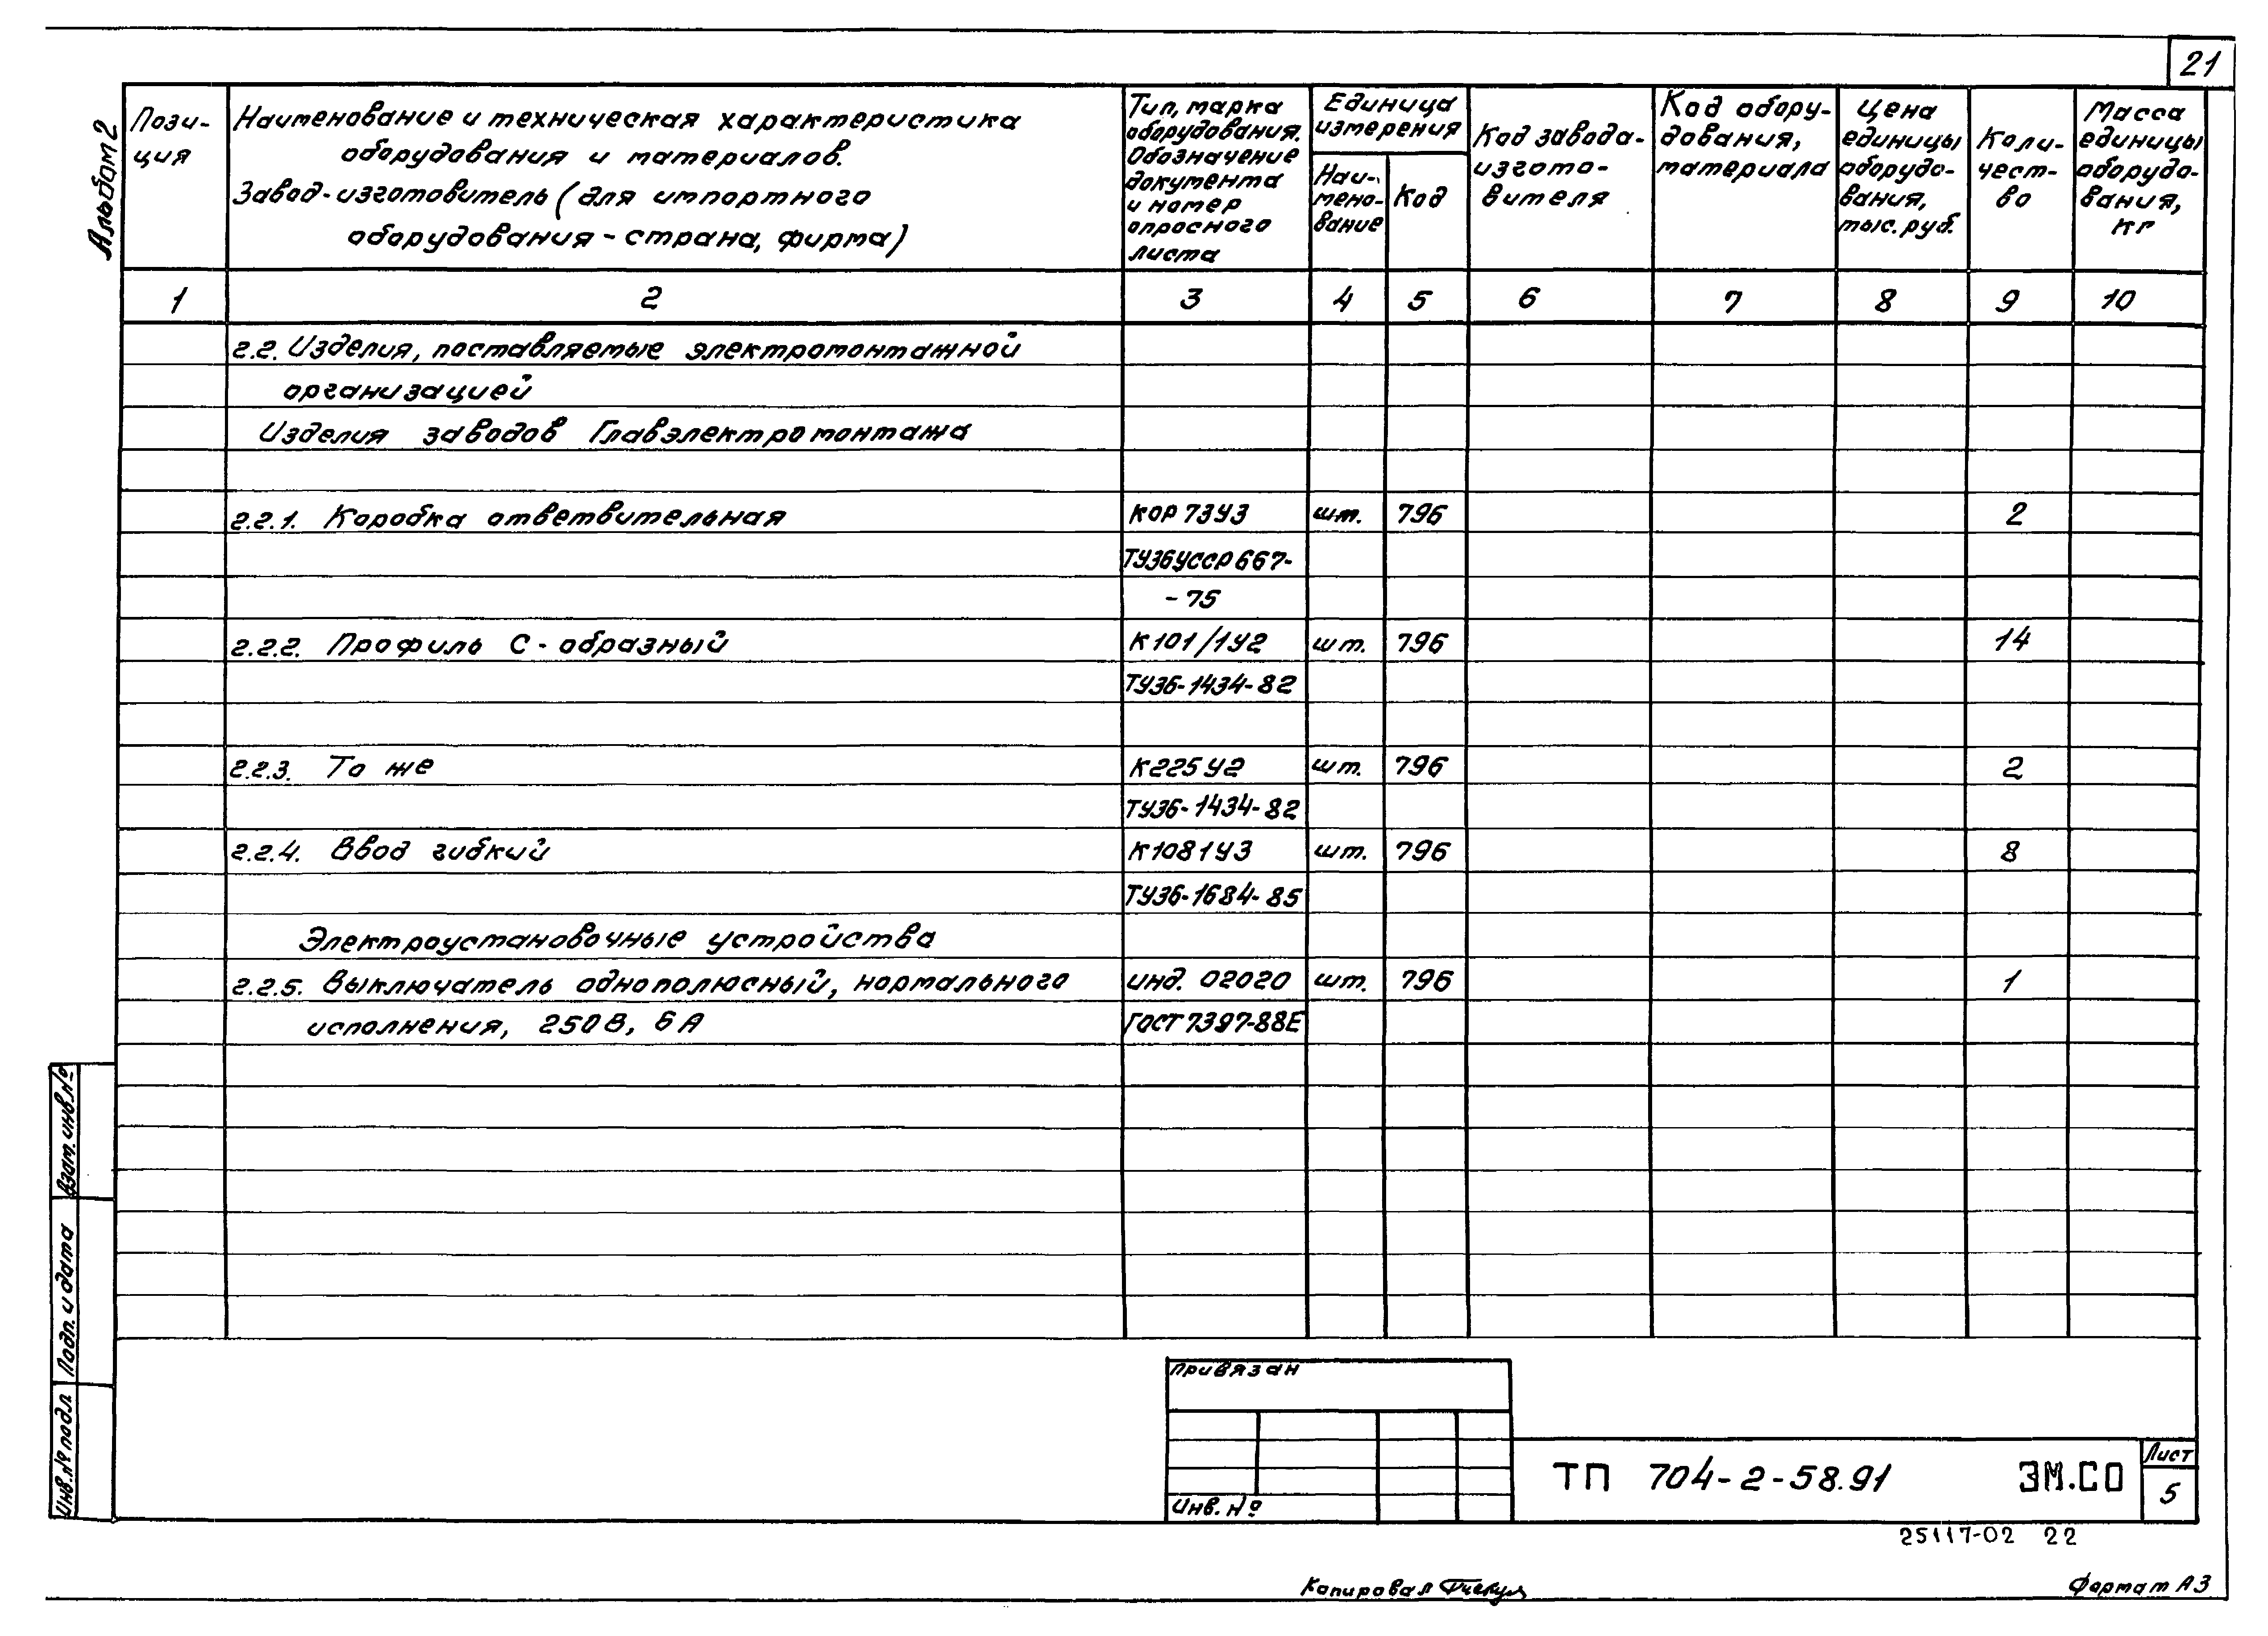 21
Альбом 2
Пози-
ция
Наименование и техническая характеристика
оборудования и материалов.
Завод-изготовитель (для импортного
оборудования - страна, фирма)
Тип, марка
оборудования.
Обозначение
документа
и номер
опросного
листа
Единица
измерения
Наи-
мено-
вание
Код
Код завода-
изгото-
вителя
Код обору-
дования,
материала
Цена
единицы
оборудо-
вания,
тыс. руб.
Коли-
чест-
во
Масса
единицы
оборудо-
вания,
кг
1 2 3 4 5 6 7 8 9 10
2.2. Изделия, поставляемые электромонтажной
организацией
Изделия заводов Главэлектромонтажа
2.2.1. Коробка ответвительная КОР 73У3 шт. 796 2
ТУ36УССР667-
-75
2.2.2. Профиль С-образный К101/1У2 шт. 796 14
ТУ36-1434-82
2.2.3. То же К225У2 шт. 796 2
ТУ36-1434-82
2.2.4. Ввод гибкий К1081У3 шт. 796 8
ТУ36-1684-85
Электроустановочные устройства
2.2.5. Выключатель однополюсный, нормального инд. 02020 шт. 796 1
исполнения, 250В, 6А ГОСТ 7397-88Е
Взам. инв. №
Подп. и дата
Инв. № подл
Привязан
Инв. №
ТП 704-2-58.91 ЭМ.СО
Лист
5
25117-02 22
Копировал
Формат А3